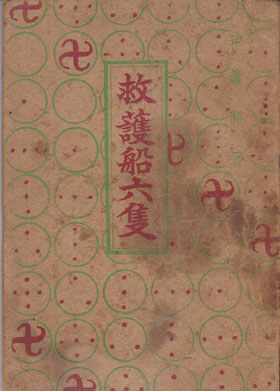 救護船六隻